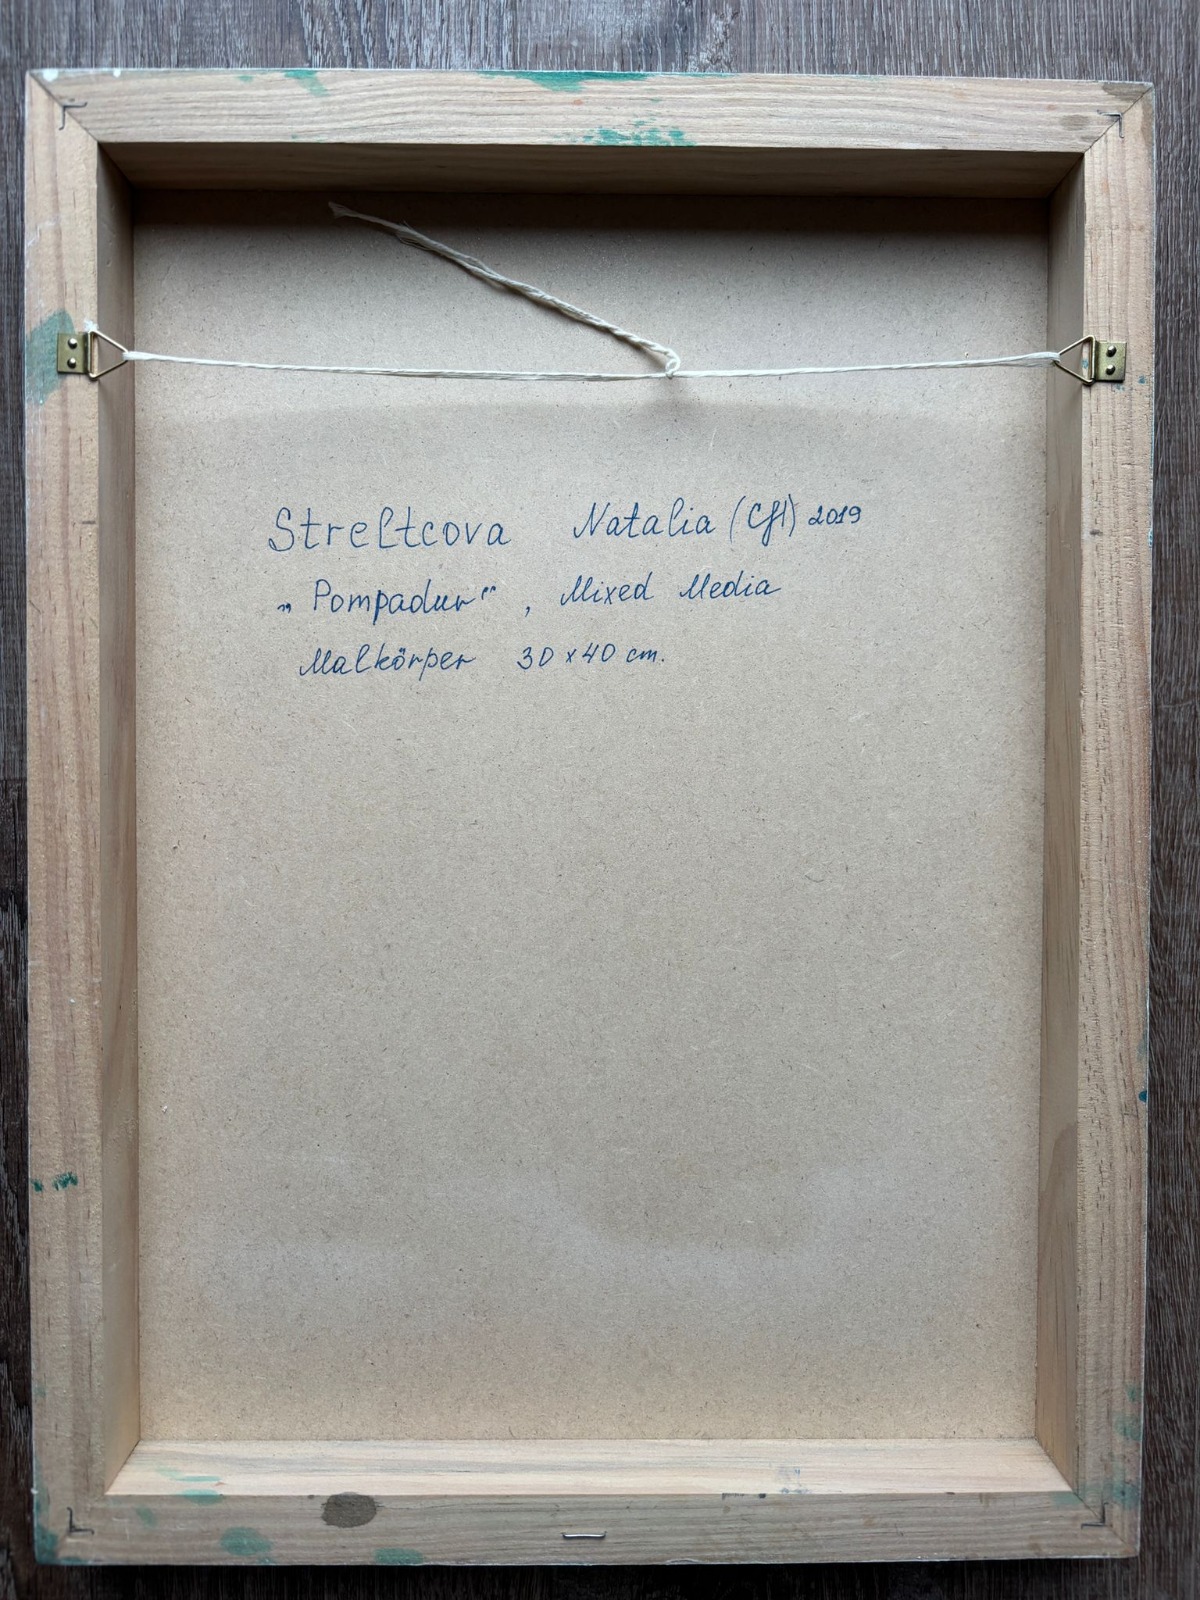 Streltcova Natalia (СЯ) 2019
„Pompadur“, Mixed Media
Malkörper 30 x 40 cm.